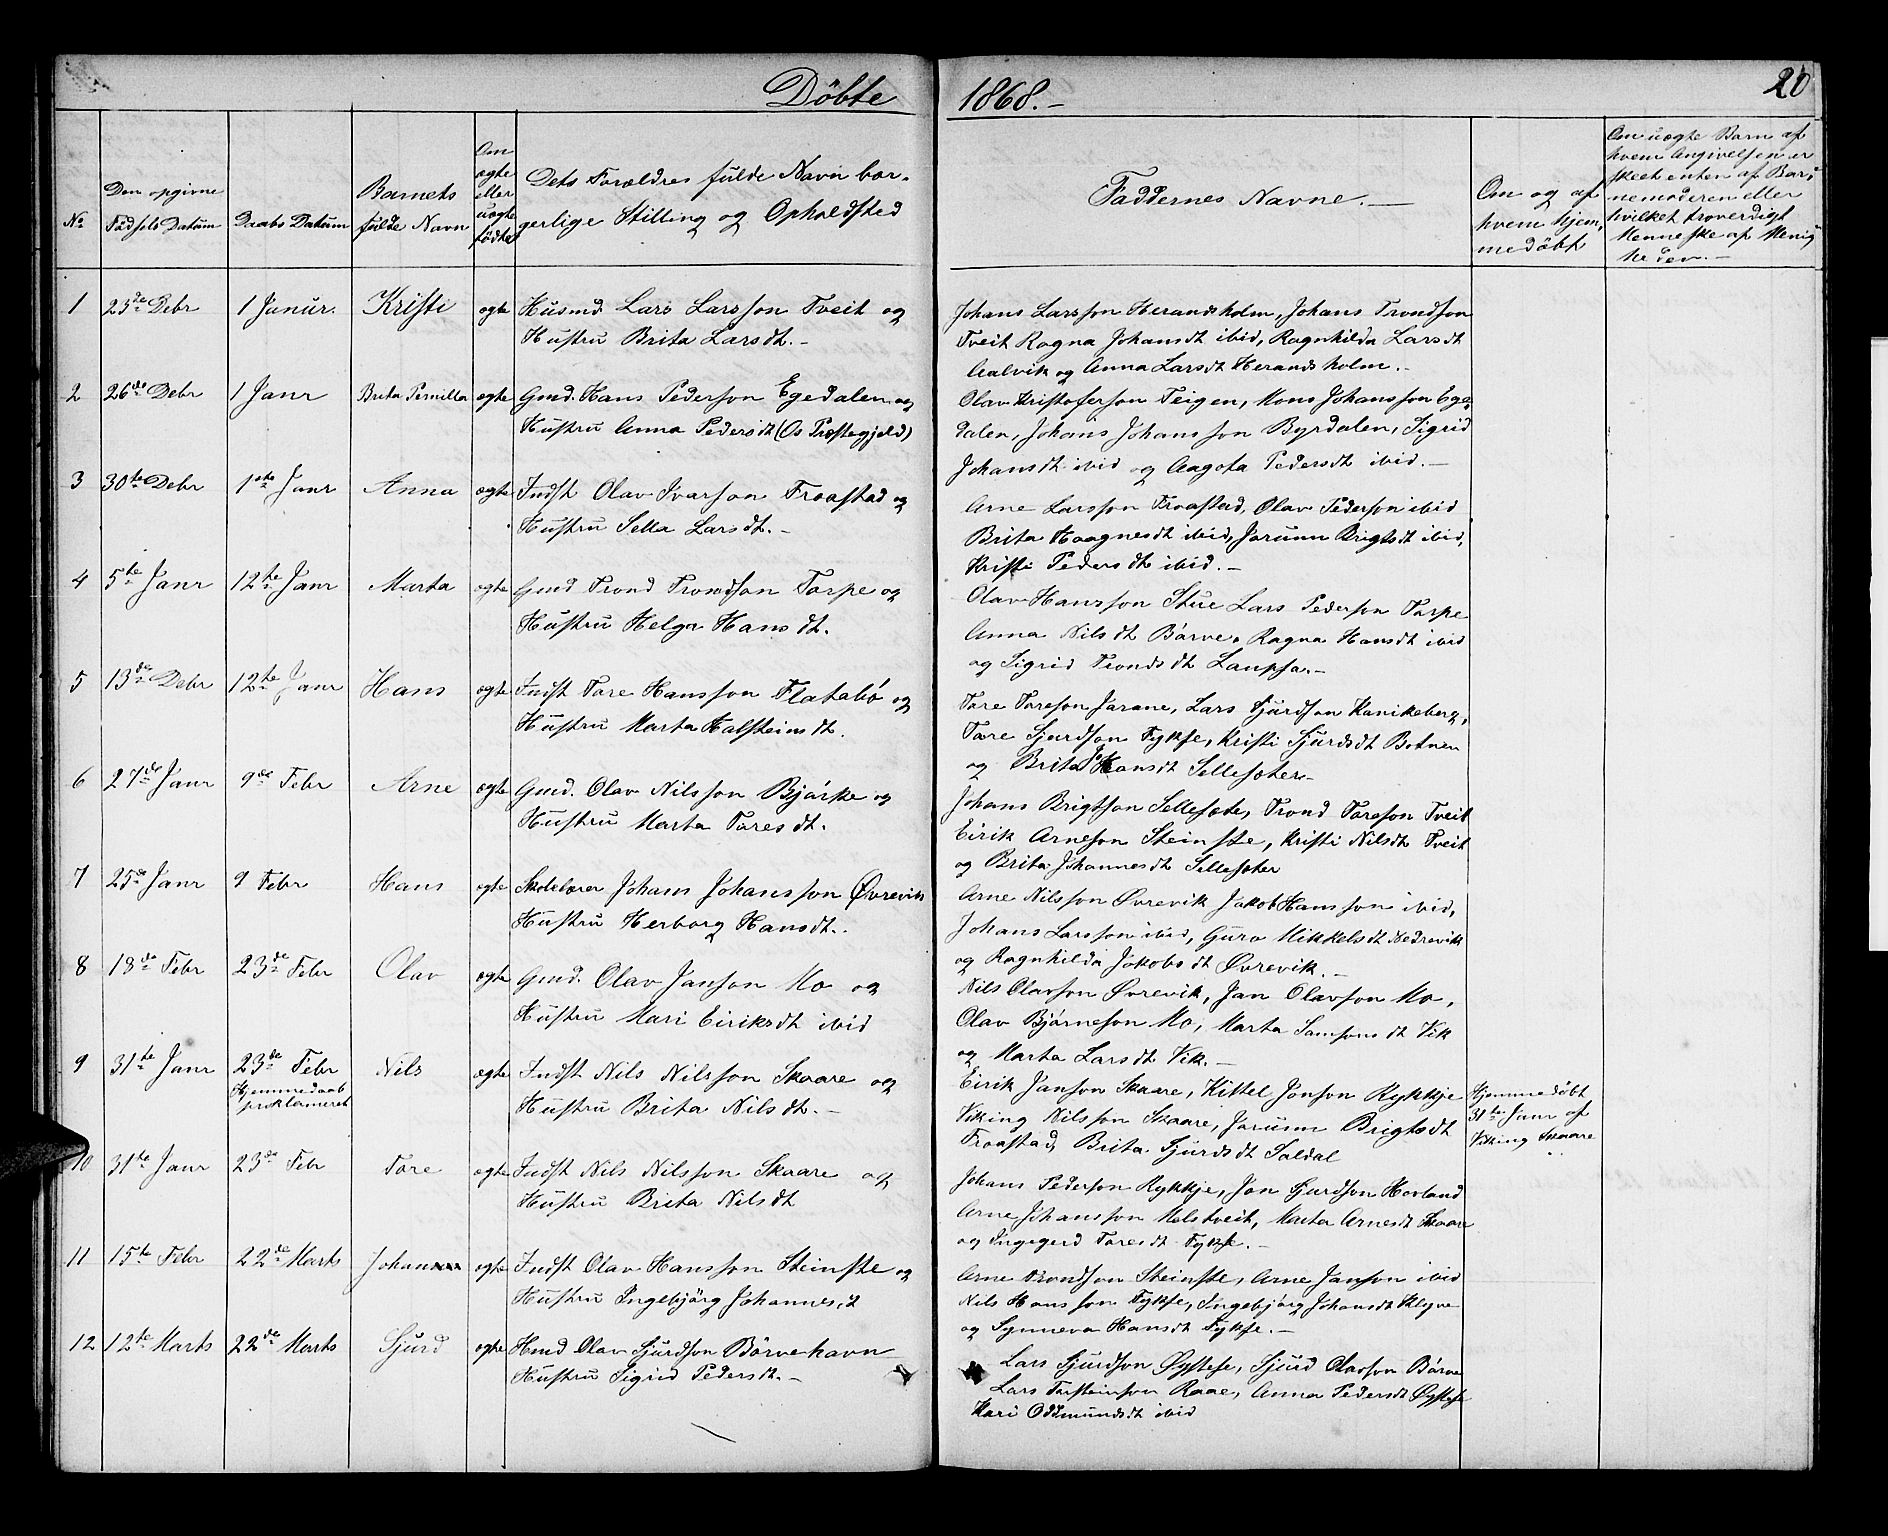 Döbte 1868.-
20
No
Den opgivne
Födsels Datum
Daabs Datum
Barnets
fulde Navn
Om
ægte
eller
uægte
födte
Dets Forældres fulde Navn bor-
gerlige Stilling og Opholdsted
Faddernes Navne. —
Om og af
hvem hjem-
medöbt
Om uægte Barn af
hvem Angivelsen er
skeet enten af Bar-
nemoderen eller
hvilket troverdigt
Menneske af Menig-
heden.-
1 23de Debr 1 Janur. Kristi ægte Husmd Lars Larsson Tveit og
Hustru Brita Larsdt.-
Johans Larsson Herandsholm, Johans Trondson
Tveit Ragna Johansdt ibid, Ragnhilda Larsdt
Aalvik og Anna Larsdt Herandsholm.-
2 26de Debr 1 Janr Brita Pernilla ægte Gmd. Hans Pederson Egedalen og
Hustru Anna Pedersdt (Os Præstegjeld)
Olav Kristoferson Teigen, Mons Johansson Ege-
dalen, Johans Johansson Byrdalen, Sigrid
Johansdt ibid og Aagota Pedersdt ibid.-
3 30te Debr 1ste Janr Anna ægte Indst Olav Ivarson Froastad og
Hustru Sella Larsdt.-
Arne Larsson Froastad, Olav Pederson ibid
Brita Haagnesdt ibid, Jorunn Brigtsdt ibid,
Kristi Pedersdt ibid.-
4 5te Janr 12te Janr Marta ægte Gmd Trond Trondson Torpe og
Hustru Helga Hansdt.
Olav Hansson Stue Lars Pederson Torpe
Anna Nilsdt Börve, Ragna Hansdt ibid
og Sigrid Trondsdt Laupsa.-
5 13de Debr 12te Janr Hans ægte Indst Tore Hansson Flatabö og
Hustru Marta Halsteinsdt.
Tore Toreson Jarane, Lars Sjurdson Kanikeberg,
Tore Sjurdson Fykse, Kristi Sjurdsdt Botnen
og Brita Hansdt Selleseter-
6 27de Janr 9de Febr Arne ægte Gmd. Olav Nilsson Bjärke og
Hustru Marta Toresdt.
Johans Brigtson Sellesæte, Trond Toreson Tveit
Eirik Arneson Steinste, Kristi Nilsdt Tveit
og Brita Johannesdt Selleseter
7 25de Janr 9 Febr Hans ægte Skolelærer Johans Johansson Øvrevik
Hustru Herborg Hansdt..
Arne Nilsson Øvrevik Jakob Hansson ibid,
Johans Larsson ibid, Guro Mikkelsdt Nedrevik
og Ragnhilda Jakobsdt Øvrevik.-
8 18de Febr 23de Febr Olav ægte Gmd. Olav Janson Mo og
Hustru Mari Eiriksdt ibid
Nils Olavson Øvrevik, Jan Olavson Mo,
Olav Björneson Mo, Marta Samsonsdt Vik
og Marta Larsdt Vik.-
9 31te Janr 23de Febr Nils ægte Indst Nils Nilsson Skaare og
Hjemmedaab
proklameret
Hustru Brita Nilsdt.-
Eirik Janson Skaare, Kittel Jonson Rykkje
Viking Nilsson Skaare, Jorunn Brigtsdt
Froastad, Brita Sjurdsdt Soldal
Hjemmedöbt
31te Janr af
Viking Skaare
10 31te Janr 23de Febr Tore ægte Indst Nils Nilsson Skaare og
Hustru Brita Nilsdt
Johans Pederson Rykkje, Jon Sjurdson Hovland
Arne Johansson Melstveit, Marta Arnesdt Skaare
og Ingegerd Toresdt Fykse.-
11 15te Febr 22de Marts Johan ægte Indst Olav Hansson Steinste og
Hustru Ingebjörg Johannesdt
Arne Trondson Steinste, Arne Janson ibid
Nils Hansson Fykse, Ingebjörg Johansdt Klyve
og Synneva Hansdt Fykse.-
12 12te Marts 22de Marts Sjurd ægte Hmd Olav Sjurdson Börvehavn
Hustru Sigrid Pedersdt.-
Lars Sjurdson Øystese, Sjurd Olavson Börve
Lars Torsteinson Raae, Anna Pedersdt Øystese
Kari Oddmundsdt ibid